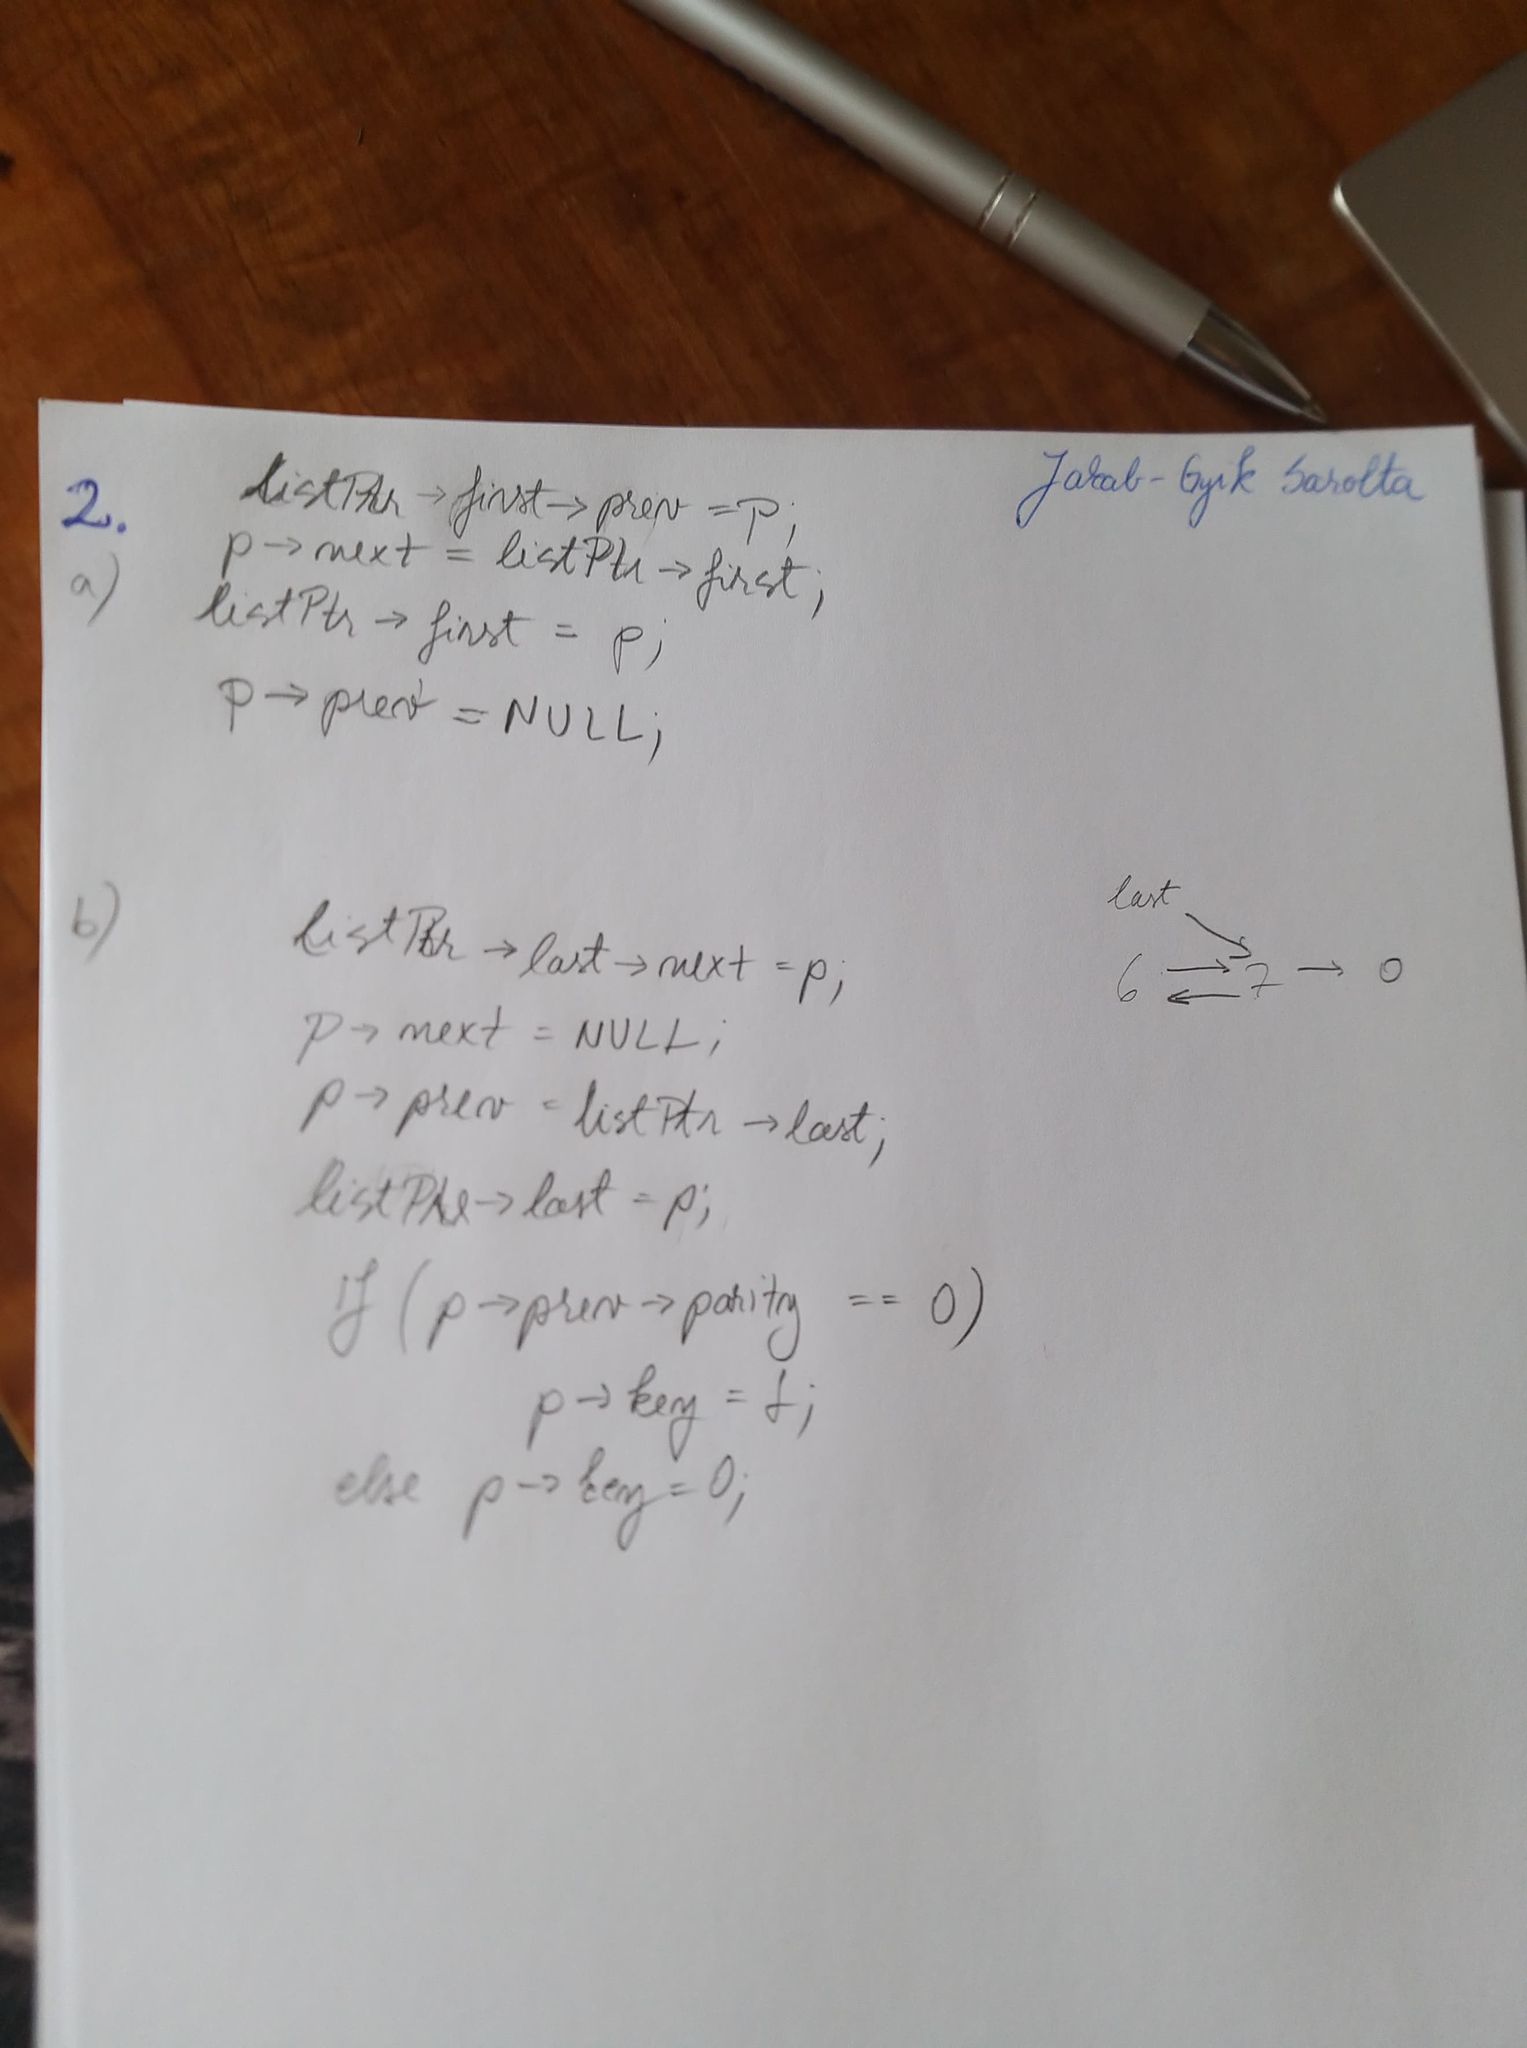 Jakab-Gyik Sarolta
2.
a)
listPtr → first → prev = p;
p → next = listPtr → first;
listPtr → first = p;
p → prev = NULL;
b)
listPtr → last → next = p;
p → next = NULL;
p → prev = listPtr → last;
listPtr → last = p;
if (p → prev → parity == 0)
p → key = 1;
else p → key = 0;
last
6 ⇄ 7 → 0